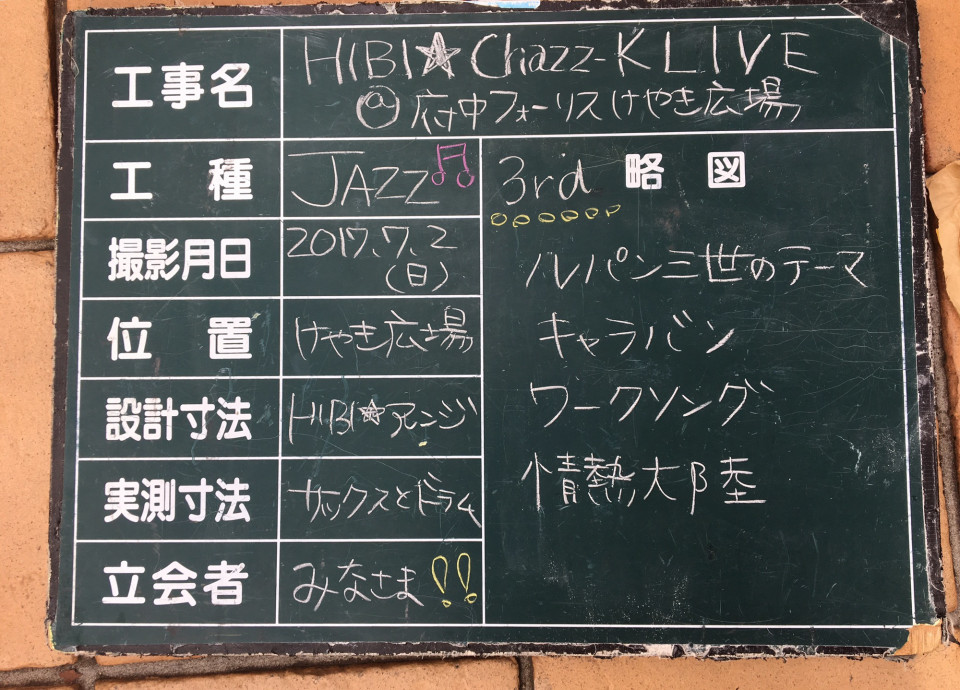 工事名 HIBI☆Chazz-K LIVE
@府中フォーリスけやき広場
工種 JAZZ♫
撮影月日 2017.7.2
(日)
位置 けやき広場
設計寸法 HIBI☆アレンジ
実測寸法 サックスとドラム
立会者 みなさま!!
3rd 略図
ルパン三世のテーマ
キャラバン
ワークソング
情熱大陸